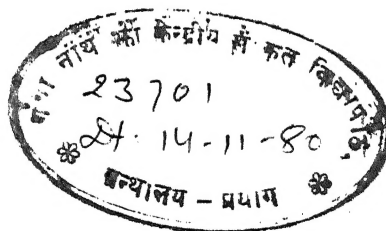 गंगा नाथ झा केन्द्रीय संस्कृत विद्यापीठ,
23701
Dt. 14-11-80
ग्रन्थालय - प्रयाग